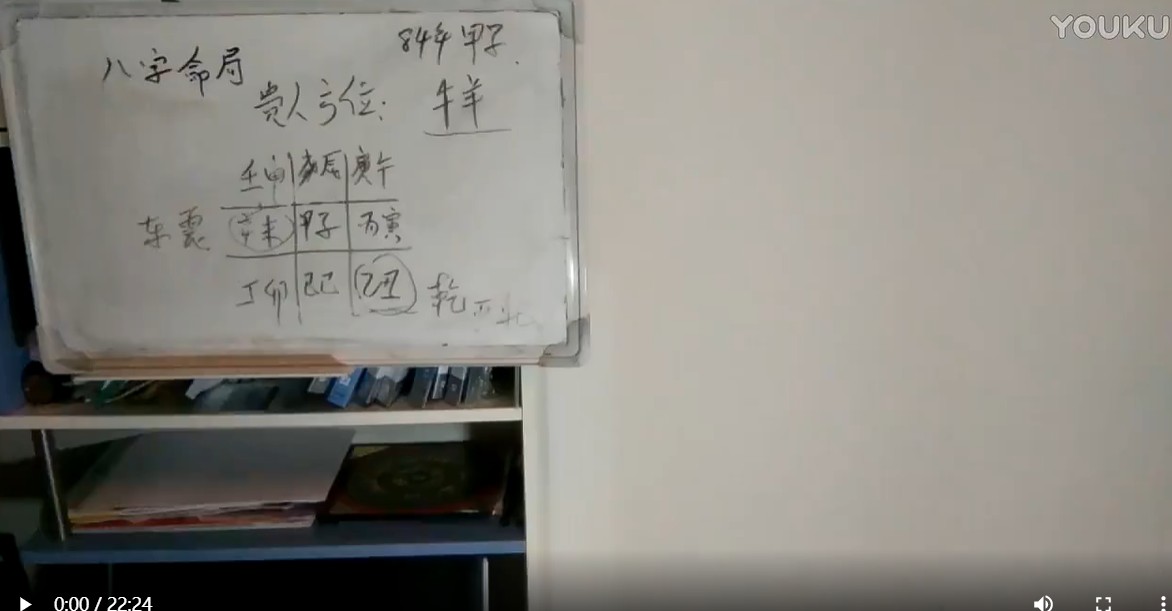 YOUKU
84年甲子.
八字命局
贵人方位: 牛羊
壬申 戊辰 庚午
东震 辛未 甲子 丙寅
丁卯 己巳 乙丑 乾西北
0:00 / 22:24